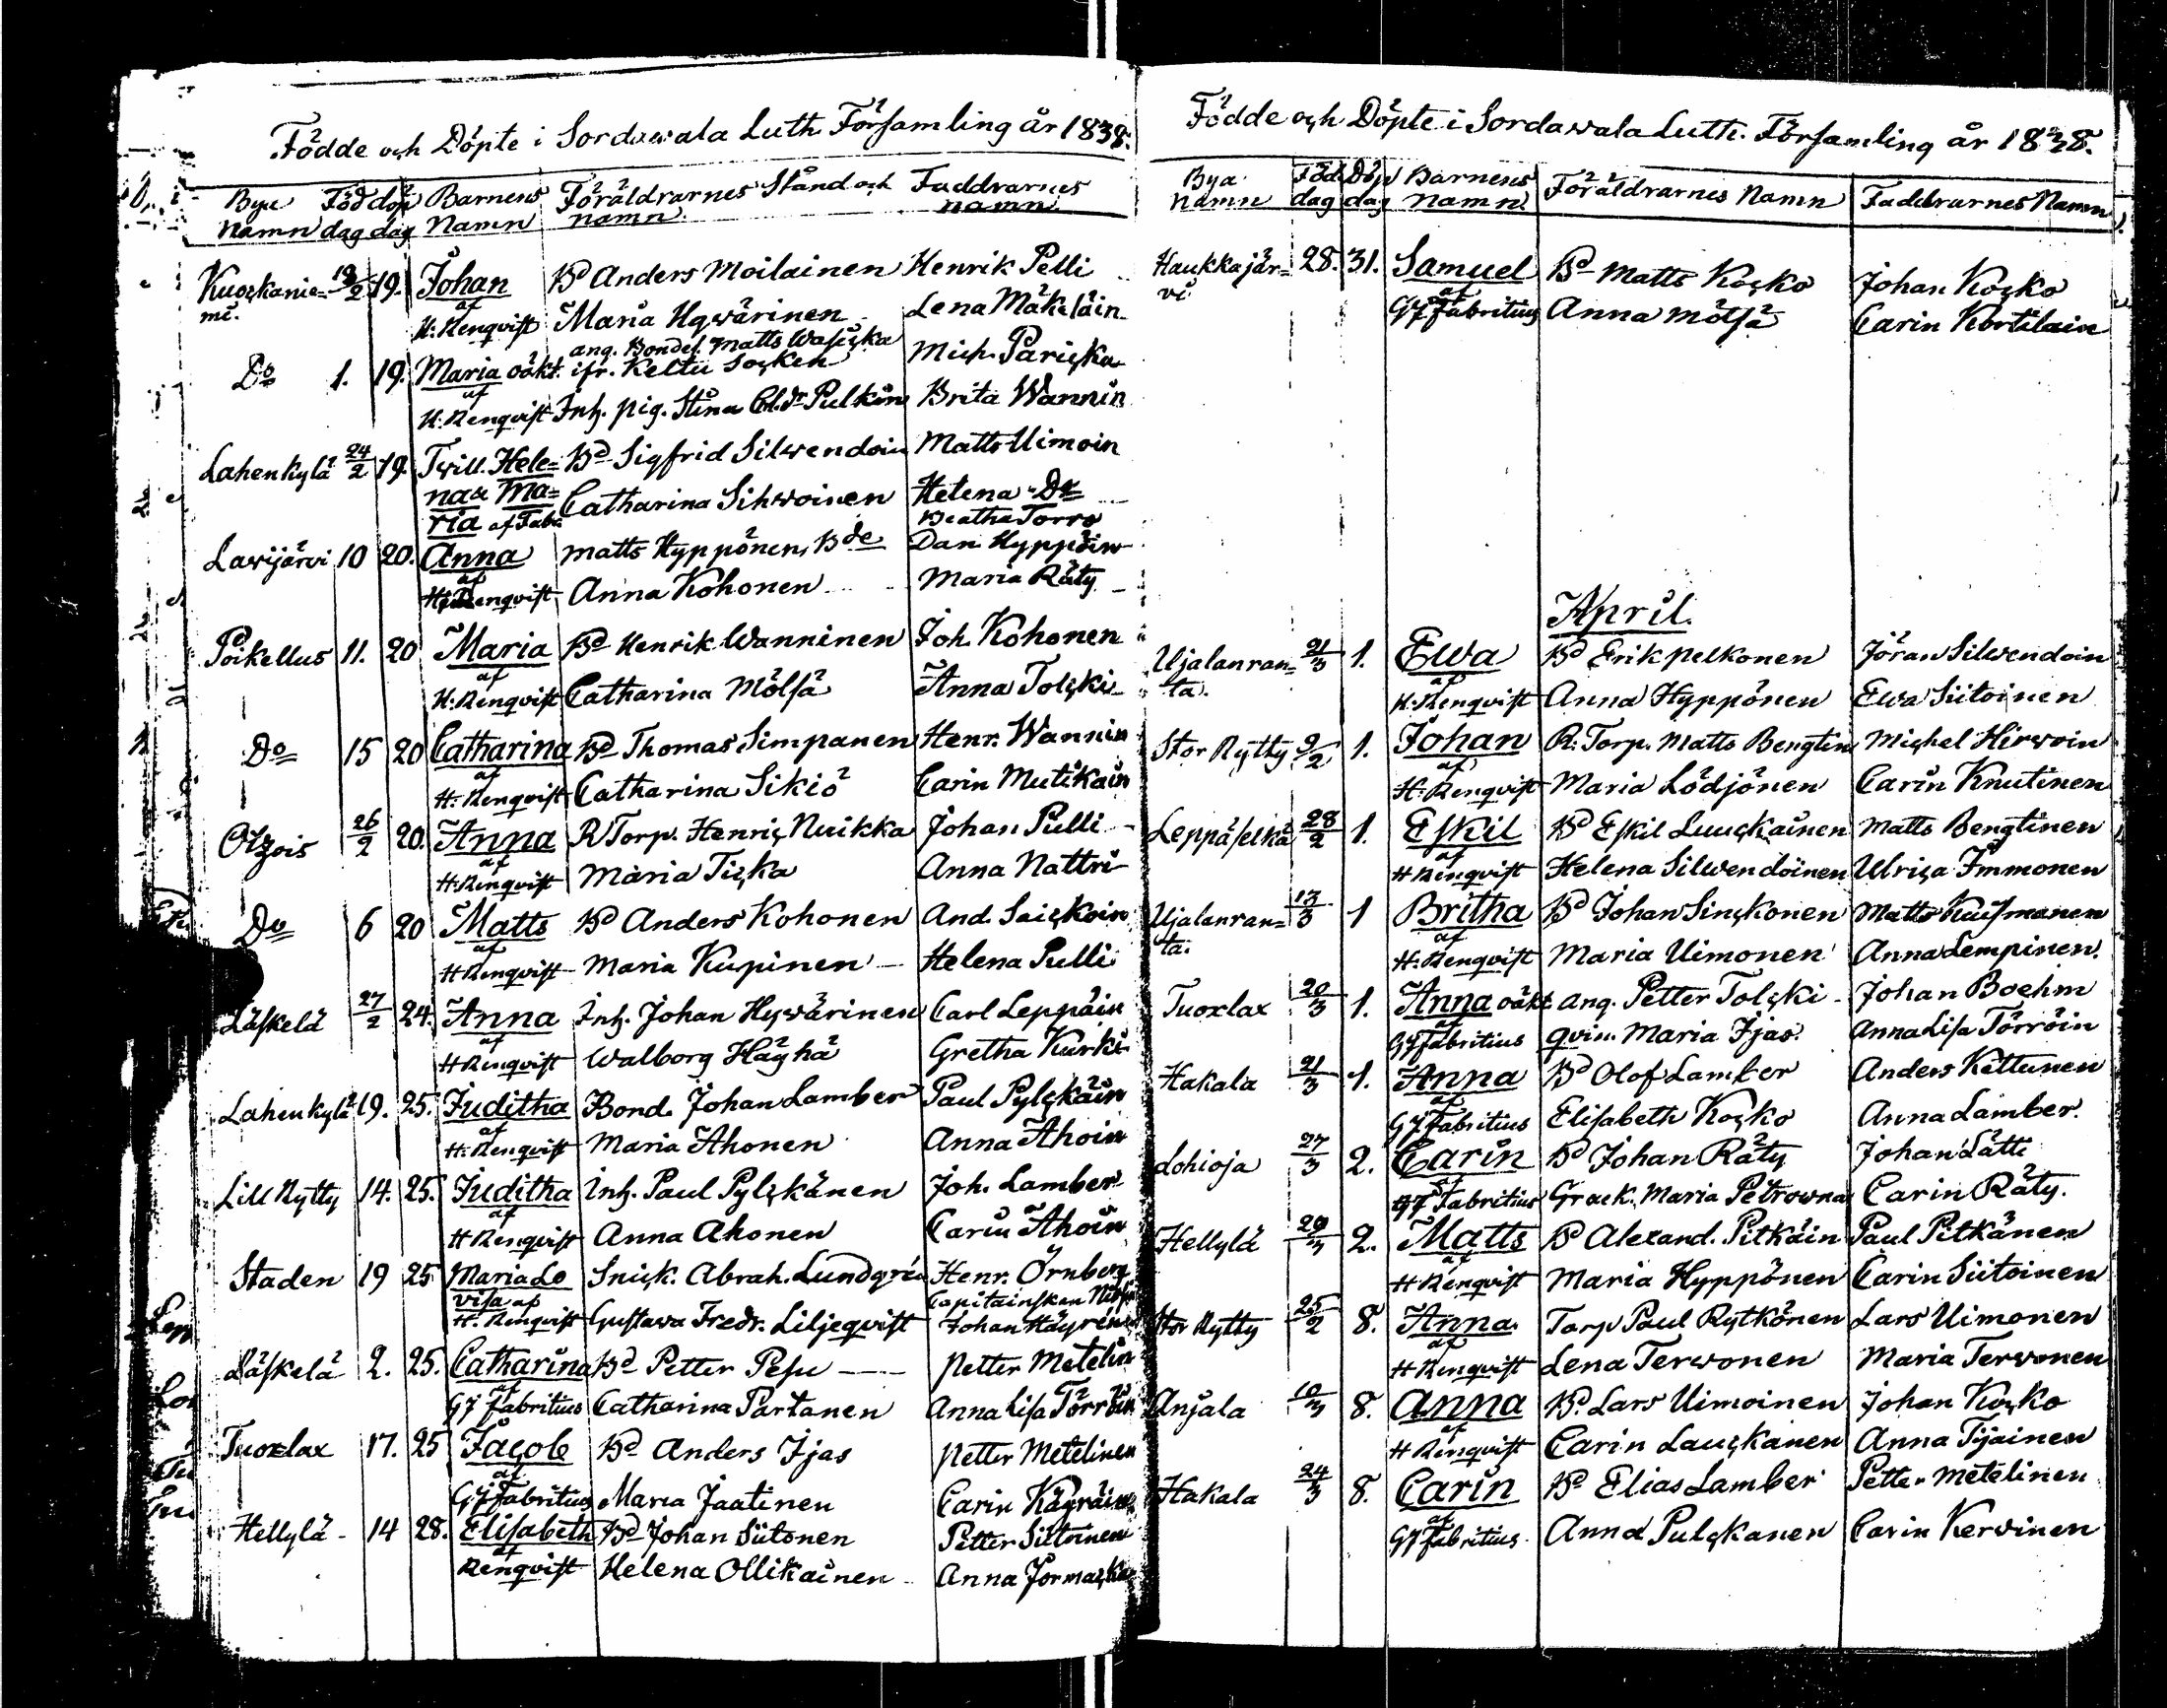 Födde och Döpte i Sordawala Luth Församling år 1838.
Bya Född döp Barnens Föräldrarnes Stånd och Faddrarnes
Namn dag dag Namn namn. namn.
Kuoskanie= 19/2 19. Johan Bd Anders Moilainen Henrik Pelli
mi. af
H: Renqvist Maria Hywärinen Lena Mäkeläin
ang. Bondes. Matts Wasiska
Do 1. 19. Maria oäkt. ifr. Keltu Socken Mich. Pariska
af
H: Renqvist Inh. pig. Stina Pulkin Brita Wannin
Lahenkylä 24/2 19. Twill. Hele= Bd Sigfrid Silwendoin Matts Uimoin
na & Ma= Catharina Sihwoinen Helena Do
ria af Fab. Beatha Torro
Lawijärvi 10 20. Anna Matts Hyppönen, Bde Dan. Hyppöin
af
H: Renqvist Anna Kohonen Maria Räty
Poikellus 11. 20 Maria Bd Henrik Wanninen Joh. Kohonen
af
H: Renqvist Catharina Mölsä Anna Tolski
Do 15 20 Catharina Bd Thomas Simpanen Henr. Wannin
af
H: Renqvist Catharina Sikiö Carin Mutikain
Otsois 26/2 20. Anna R Torp. Henric Nuikka Johan Pulli
af
H: Renqvist Maria Tiska Anna Nattri
Do 6 20 Matts Bd Anders Kohonen And. Saiskoin
af
H Renqvist Maria Kupinen Helena Pulli
Läskelä 27/2 24. Anna Inh. Johan Hywärinen Carl Leppäin
af
H Renqvist Walborg Häyhä Gretha Kurki
Lahenkylä 19. 25. Juditha Bond. Johan Lamber Paul Pylskäin
af
H: Renqvist Maria Ahonen Anna Ahoin
Lill Rytty 14. 25. Juditha Inh. Paul Pylskänen Joh. Lamber
af
H Renqvist Anna Ahonen Carin Ahoin
Staden 19 25 Maria Lo Snick. Abrah. Lundgrén Henr. Örnberg
visa af Capitainskan
H. Renqvist Gustawa Fredr. Liljeqvist Johan Häyrén
Läskelä 2. 25. Catharina Bd Petter Pesu Petter Metelin
af
GJ Fabritius Catharina Partanen Anna Lisa Törröin
Tuoxlax 17. 25 Jacob Bd Anders Ijas Petter Metelinen
af
GJ Fabritius Maria Jaatinen Carin Käyräin
Hellylä 14 28. Elisabeth Bd Johan Siitonen Petter Siitoinen
af
Renqvist Helena Ollikainen Anna Jormaska
Födde och Döpte i Sordawala Luth. Församling år 1838.
Bya Föd. Döp Barnens Föräldrarnes Namn Faddrarnes Namn
namn dag dag namn
Haukkajär= 28. 31. Samuel Bd Matts Kosko Johan Kosko
vi af
GJ Fabritius Anna Mölsä Carin Kortilain
April.
Ujalanran= 21/3 1. Ewa Bd Erik Pelkonen Jöran Silwendoin
ta. af
H: Renqvist Anna Hyppönen Ewa Siitoinen
Stor Rytty 9/2 1. Johan R: Torp. Matts Bengtin Michel Hirwoin
af
H: Renqvist Maria Lödjönen Carin Knutinen
Leppäselkä 28/2 1. Eskil Bd Eskil Luuskainen Matts Bengtinen
af
H Renqvist Helena Silwendoinen Ulrica Immonen
Ujalanran= 13/3 1 Britha Bd Johan Sinskonen Matts Kuismanen
ta. af
H: Renqvist Maria Uimonen Anna Lempinen.
Tuoxlax 20/3 1. Anna oäkt ang. Petter Tolski Johan Boehm
af
GJ Fabritius qvin. Maria Ijas. Anna Lisa Törröin
Hakala 21/3 1. Anna Bd Olof Lamber Anders Kettunen
af
GJ Fabritius Elisabeth Kosko Anna Lamber.
Lohioja 27/3 2. Carin Bd Johan Räty Johan Lätti
af
GJ Fabritius Graek. Maria Petrowna Carin Räty.
Hellylä 29/3 2. Matts Bd Alexand. Pitkäin Paul Pitkänen
af
H Renqvist Maria Hyppönen Carin Siitoinen
Stor Rytty 25/2 8. Anna Torp Paul Rytkönen Lars Uimonen
af
H Renqvist Lena Terwonen Maria Terwonen
Anjala 10/3 8. Anna Bd. Lars Uimoinen Johan Kosko
af
H Renqvist Carin Lauskanen Anna Tijainen
Hakala 24/3 8. Carin Bd Elias Lamber Petter Metelinen
af
GJ Fabritius Anna Pulskanen Carin Kerwinen